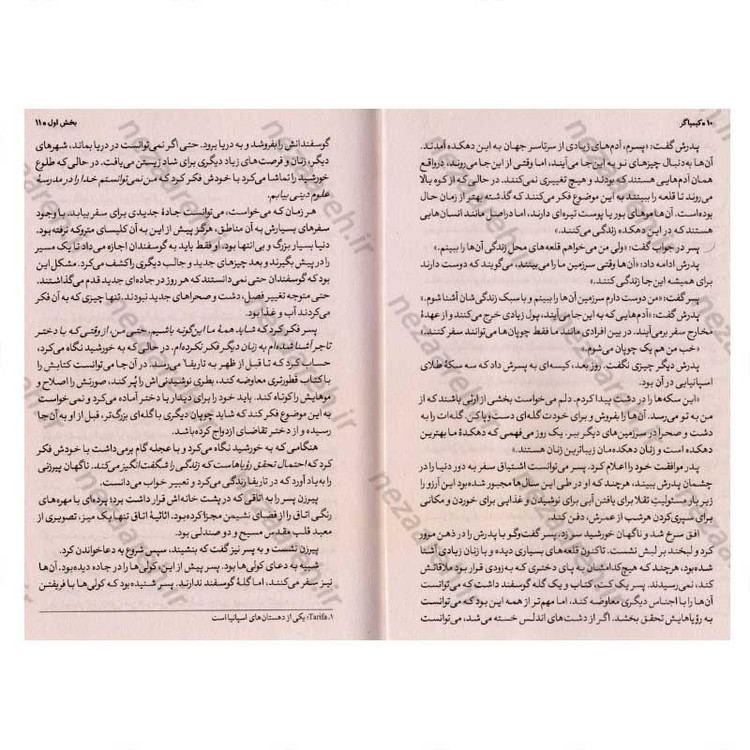 ۱۰ ● کیمیاگر
پدرش گفت: «پسرم، آدم‌های زیادی از سرتاسر جهان به این دهکده آمدند.
آن‌ها به‌دنبال چیزهای نو به این‌جا می‌آیند، اما وقتی از این‌جا می‌روند، درواقع
همان آدم‌هایی هستند که بودند و هیچ تغییری نمی‌کنند. در حالی‌که از کوه بالا
می‌روند تا قلعه را ببینند به این موضوع فکر می‌کنند که گذشته بهتر از زمان حال
بوده است. آن‌ها موهای بور یا پوست تیره‌ای دارند، اما دراصل مانند انسان‌هایی
هستند که در این دهکده زندگی می‌کنند.»
پسر در جواب گفت: «ولی من می‌خواهم قلعه‌های محل زندگی آن‌ها را ببینم.»
پدرش ادامه داد: «آن‌ها وقتی سرزمین ما را می‌بینند، می‌گویند که دوست دارند
برای همیشه این‌جا زندگی کنند.»
پسر گفت: «من دوست دارم سرزمین آن‌ها را ببینم و با سبک زندگی‌شان آشنا شوم.»
پدرش گفت: «آدم‌هایی که به این‌جا می‌آیند، پول زیادی خرج می‌کنند و از عهدهٔ
مخارج سفر برمی‌آیند. در بین افرادی مانند ما فقط چوپان‌ها می‌توانند سفر کنند.»
«خب من هم یک چوپان می‌شوم.»
پدرش دیگر چیزی نگفت. روز بعد، کیسه‌ای به پسرش داد که سه سکهٔ طلای
اسپانیایی در آن بود.
«این سکه‌ها را در دشت پیدا کردم. دلم می‌خواست بخشی از ارثی باشند که از
من به تو می‌رسد. آن‌ها را بفروش و برای خودت گله‌ای دست‌وپا کن. گله‌ات را به
دشت و صحرا در سرزمین‌های دیگر ببر. یک روز می‌فهمی که دهکدهٔ ما بهترین
دهکده است و زنان دهکده‌مان زیباترین زنان هستند.»
پدر موافقت خود را اعلام کرد. پسر می‌توانست اشتیاق سفر به دور دنیا را در
چشمان پدرش ببیند، هرچند که او در طی این سال‌ها مجبور شده بود این آرزو را
زیر بار مسئولیتِ تقلا برای یافتن آبی برای نوشیدن و غذایی برای خوردن و مکانی
برای سپری‌کردن هرشب از عمرش، دفن کند.
افق سرخ شد و ناگهان خورشید سر زد. پسر گفت‌وگو با پدرش را در ذهن مرور
کرد و لبخند بر لبش نشست. تاکنون قلعه‌های بسیاری دیده و با زنان زیادی آشنا
شده بود، هرچند که هیچ‌کدامشان به پای دختری که به‌زودی قرار بود ملاقاتش
کند، نمی‌رسیدند. پسر یک کت، کتاب و یک گله گوسفند داشت که می‌توانست
آن‌ها را با اجناس دیگری معاوضه کند، اما مهم‌تر از همه این بود که می‌توانست
به رؤیاهایش تحقق ببخشد. اگر از دشت‌های اندلس خسته می‌شد، می‌توانست
بخش اول ● ۱۱
گوسفندانش را بفروشد و به دریا برود. حتی اگر نمی‌توانست در دریا بماند، شهرهای
دیگر، زنان و فرصت‌های زیاد دیگری برای شاد زیستن می‌یافت. در حالی که طلوع
خورشید را تماشا می‌کرد با خودش فکر کرد که من نمی‌توانستم خدا را در مدرسهٔ
علوم دینی بیابم.
هر زمان که می‌خواست، می‌توانست جادهٔ جدیدی برای سفر بیابد. با وجود
سفرهای بسیارش به آن مناطق، هرگز پیش از این به آن کلیسای متروکه نرفته بود.
دنیا بسیار بزرگ و بی‌انتها بود. او فقط باید به گوسفندان اجازه می‌داد تا یک مسیر
را در پیش بگیرند و بعد چیزهای جدید و جالب دیگری را کشف می‌کرد. مشکل این
بود که گوسفندان حتی نمی‌دانستند که هر روز در جاده‌ای جدید قدم می‌گذاشتند.
حتی متوجه تغییر فصل، دشت و صحراهای جدید نبودند. تنها چیزی که به آن فکر
می‌کردند آب و غذا بود.
پسر فکر کرد که شاید همهٔ ما این‌گونه باشیم. حتی من از وقتی که با دختر
تاجر آشنا شده‌ام به زنان دیگر فکر نکرده‌ام. در حالی که به خورشید نگاه می‌کرد،
حساب کرد که تا قبل از ظهر به تاریفا۱ می‌رسد. در آن‌جا می‌توانست کتابش را
با کتاب قطورتری معاوضه کند، بطری نوشیدنی‌اش را پُر کند، صورتش را اصلاح و
موهایش را کوتاه کند. باید خود را برای دیدار با دختر آماده می‌کرد و نمی‌خواست
به این موضوع فکر کند که شاید چوپان دیگری با گله‌ای بزرگ‌تر، قبل از او به آن‌جا
رسیده و از دختر تقاضای ازدواج کرده‌باشد.
هنگامی که به خورشید نگاه می‌کرد و با عجله گام برمی‌داشت با خودش فکر
کرد که احتمال تحقق رؤیاهاست که زندگی را شگفت‌انگیز می‌کند. ناگهان پیرزنی
را به یاد آورد که در تاریفا زندگی می‌کرد و تعبیر خواب می‌دانست.
پیرزن پسر را به اتاقی که در پشت خانه‌اش قرار داشت برد؛ پرده‌ای با مهره‌های
رنگی اتاق را از فضای نشیمن مجزا کرده‌بود. اثاثیهٔ اتاق تنها یک میز، تصویری از
معبد قلب مقدس مسیح و دو صندلی بود.
پیرزن نشست و به پسر نیز گفت که بنشیند، سپس شروع به دعاخواندن کرد.
شبیه به دعای کولی‌ها بود. پسر پیش از این، کولی‌ها را در جاده دیده‌بود. آن‌ها
نیز سفر می‌کنند، اما گلهٔ گوسفند ندارند. پسر شنیده‌بود که کولی‌ها با فریفتن
۱. Tarifa: یکی از دهستان‌های اسپانیا است
nezaareh.ir